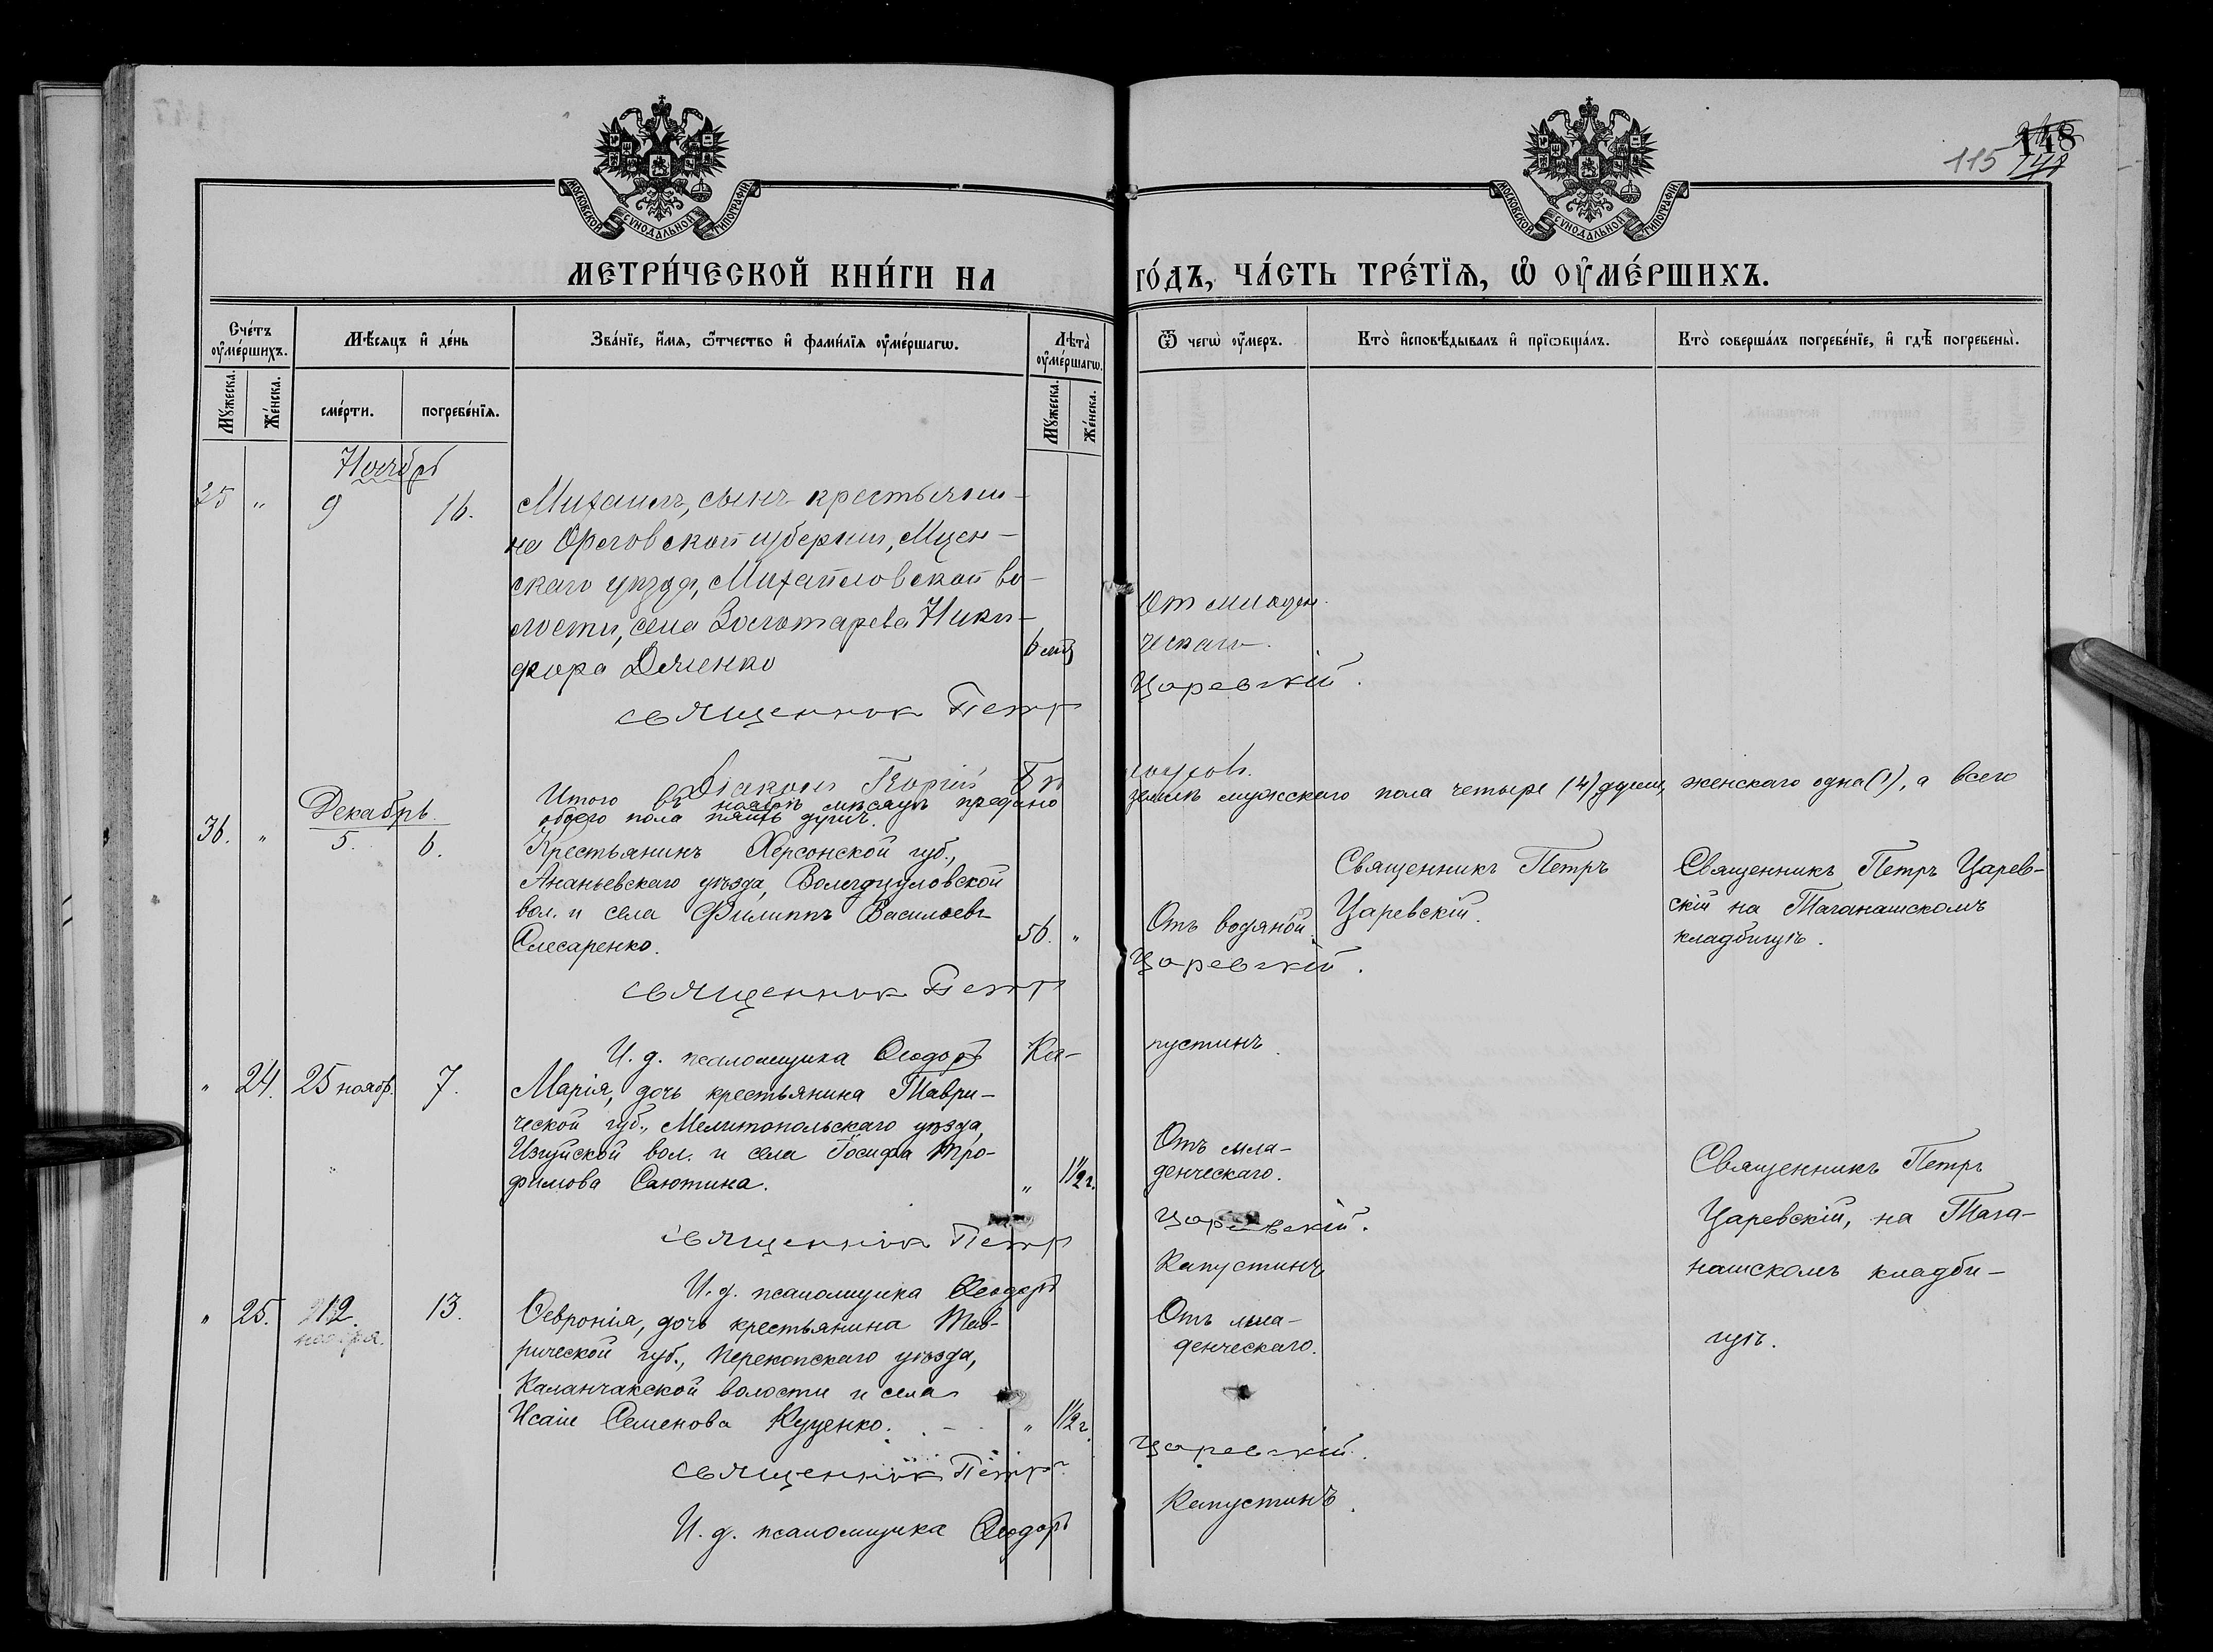 148
115
МОСКОВСКОЙ СѴНОДАЛЬНОЙ ТИПОГРАФІИ
МОСКОВСКОЙ СѴНОДАЛЬНОЙ ТИПОГРАФІИ
МЕТРИ́ЧЕСКОЙ КНИ́ГИ НА
ГО́ДЪ, ЧА́СТЬ ТРЕ́ТЇѦ, Ѡ҆ ОУ҆МЕ́РШИХЪ.
Сче́тъ оу҆ме́ршихъ.
Мѣ́сяцъ и҆ де́нь
Зва́нїе, и҆́мя, ѻ҆́тчество и҆ фами́лїя оу҆ме́ршагѡ.
Лѣ́та оу҆ме́ршагѡ.
Ѿ чегѡ̀ оу҆́меръ.
Кто̀ и҆сповѣ́дывалъ и҆ прїѻбща́лъ.
Кто̀ соверша́лъ погребе́нїе, и҆ гдѣ̀ погребены̀.
Мꙋ́жеска.
Же́нска.
сме́рти.
погребе́нїя.
Мꙋ́жеска.
Же́нска.
Ноябрь
25 " 9 16. Михаилъ, сынъ крестьяни-
на Орловской губернии, Мцен-
скаго уѣзда, Михайловской во-
лости, села Золотарева Ники-
фора Дяченко 6 мѣс
От младен-
ческаго.
священник Петр Царевскій.
Діаконъ Георгій
Итого въ ноябрѣ мѣсяцѣ предано землѣ мужскаго пола четыре (4) души, женскаго одна (1), а всего
обоего пола пять душъ.
Декабрь.
36. " 5. 6. Крестьянинъ Херсонской губ.,
Ананьевскаго уѣзда,
вол. и села Филиппъ Васильевъ
Слесаренко. 56. "
Отъ водяной.
Священникъ Петръ
Царевскій.
Священникъ Петръ Царев-
скій на Таганашскомъ
кладбищѣ.
священник Петр Царевскій.
И. д. псаломщика Ѳеодоръ Ка-пустинъ.
" 24. 25 ноябр. 7. Марія, дочь крестьянина Таври-
ческой губ., Мелитопольскаго уѣзда,
вол. и села Іосифа Тро-
фимова Саютина. " 1½ г.
Отъ мла-
денческаго.
Священникъ Петръ
Царевскій, на Тага-
нашскомъ кладби-
щѣ.
священник Петр Царевскій.
И. д. псаломщика Ѳеодоръ Капустинъ
" 25. 12. ноября. 13. Ѳевронія, дочь крестьянина Тав-
рической губ., Перекопскаго уѣзда,
Каланчакской волости и села
Исаіи Семенова Куценко. " 1½ г.
Отъ мла-
денческаго.
священник Петр Царевскій.
И. д. псаломщика Ѳеодоръ Капустинъ.